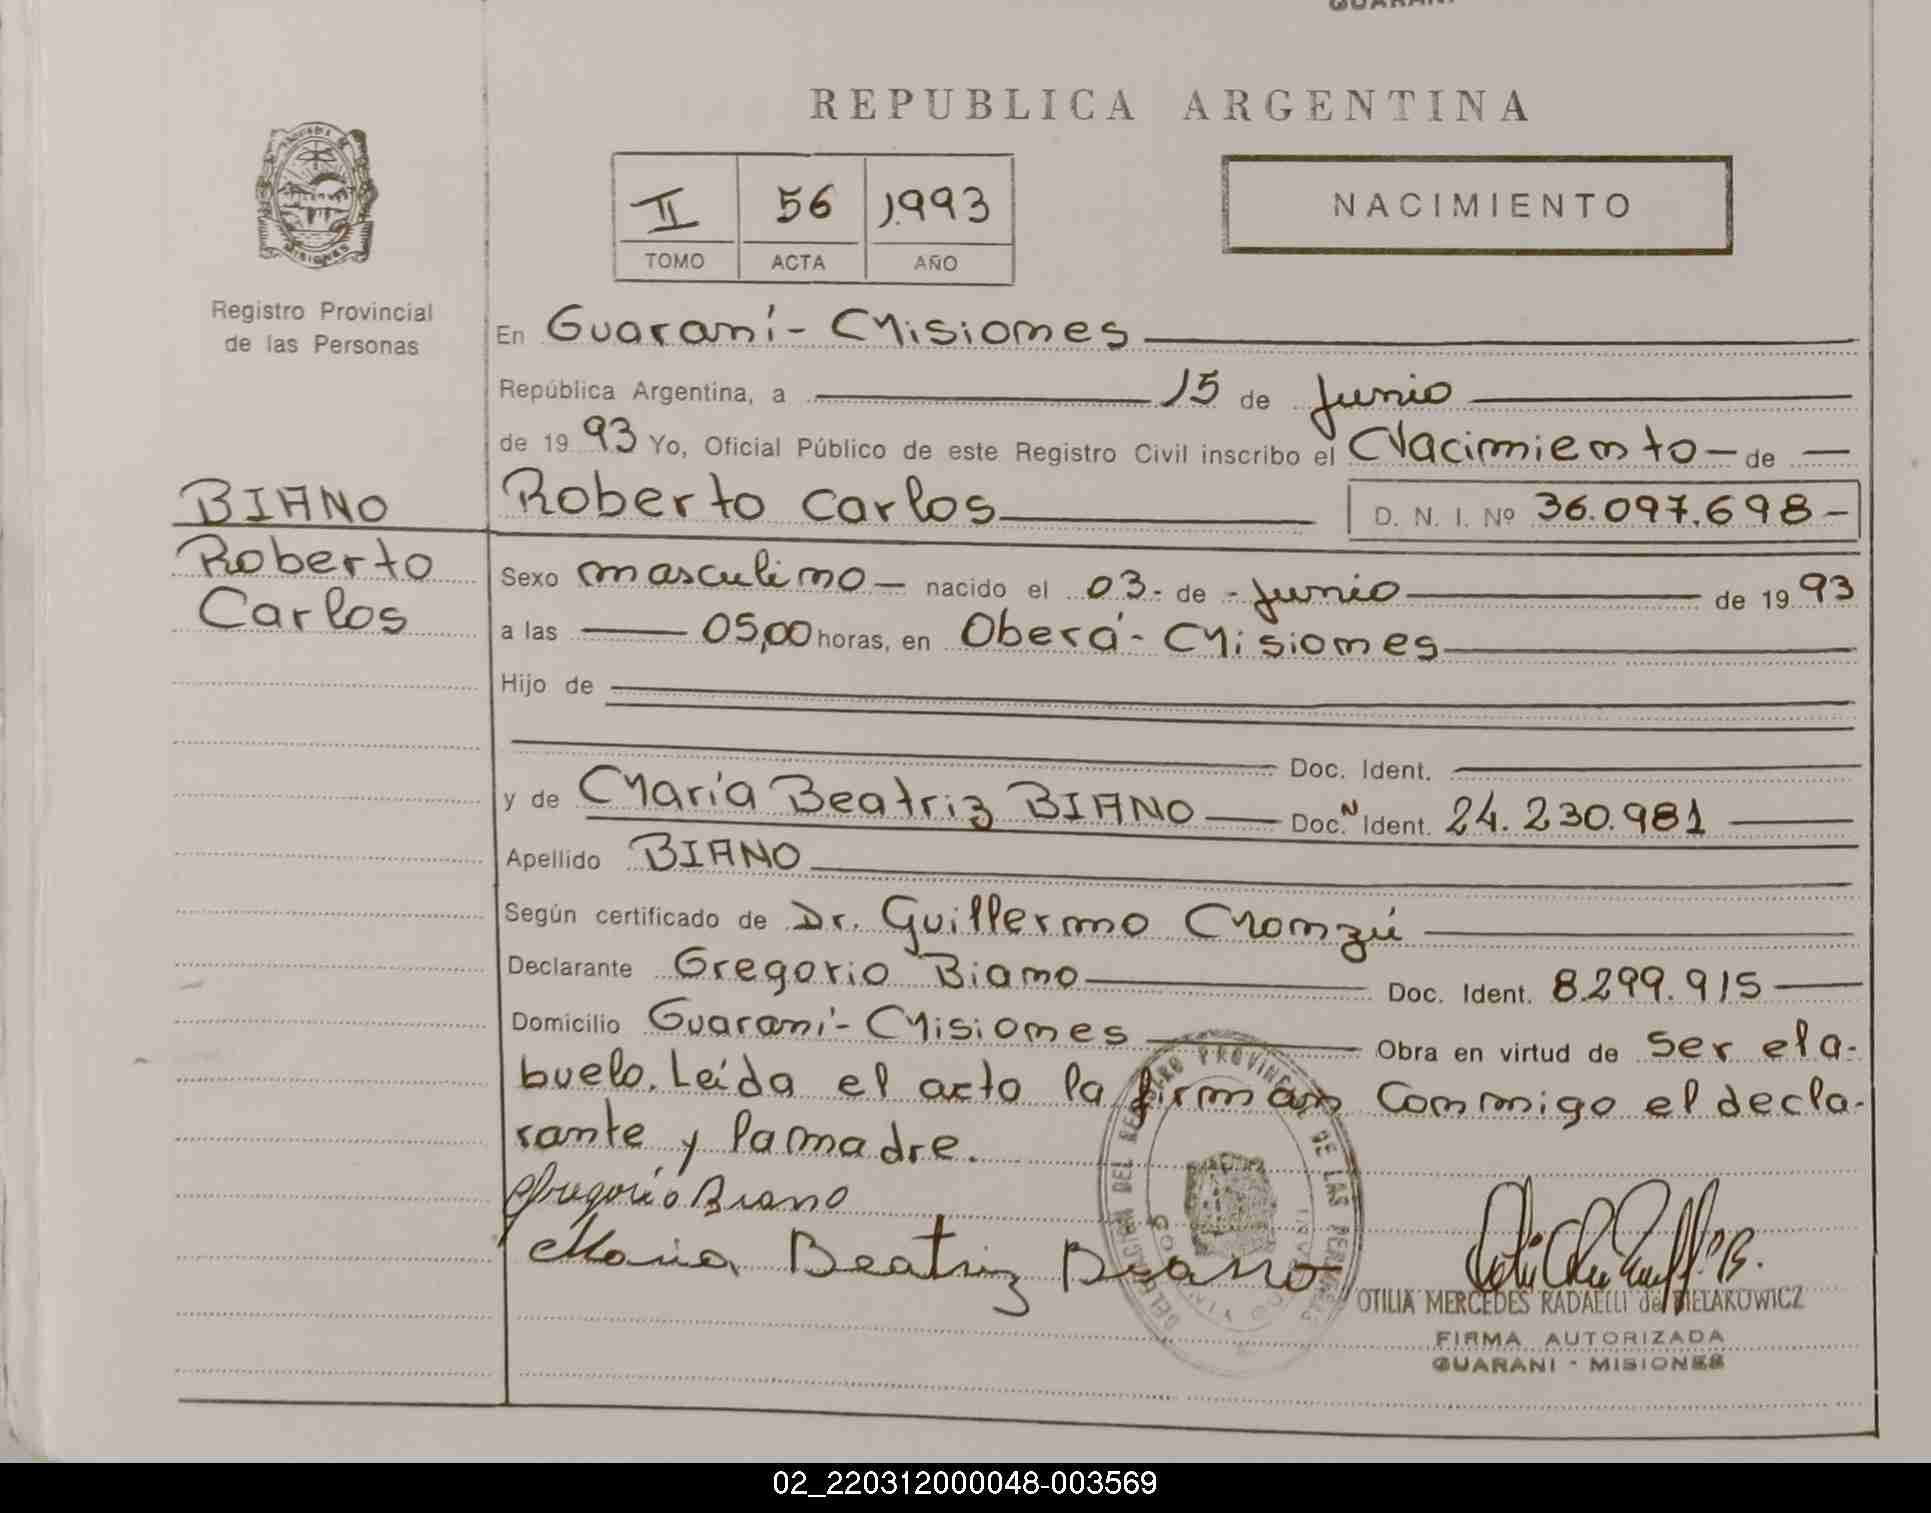 GUARANI
REPUBLICA ARGENTINA
II 56 1.993
TOMO ACTA AÑO
NACIMIENTO
MISIONES
Registro Provincial
de las Personas
BIANO
Roberto
Carlos
En Guaraní - Misiones
República Argentina, a 15 de Junio
de 19 93 Yo, Oficial Público de este Registro Civil inscribo el Nacimiento - de
Roberto Carlos D. N. I. Nº 36.097.698-
Sexo masculino - nacido el 03.- de - Junio de 19 93
a las 05,00 horas, en Oberá - Misiones
Hijo de
Doc. Ident.
y de María Beatriz BIANO Doc.N Ident. 24.230.981
Apellido BIANO
Según certificado de Dr. Guillermo Monzú
Declarante Gregorio Biano Doc. Ident. 8.299.915
Domicilio Guaraní - Misiones Obra en virtud de Ser el a-
buelo. Leída el acta la firman Conmigo el decla-
rante y la madre.
Gregorio Biano
Maria Beatriz Biano
DELEGACION DEL REGISTRO PROVINCIAL DE LAS PERSONAS
OTILIA MERCEDES RADAELLI de BIELAKOWICZ
FIRMA AUTORIZADA
GUARANI - MISIONES
02_220312000048-003569